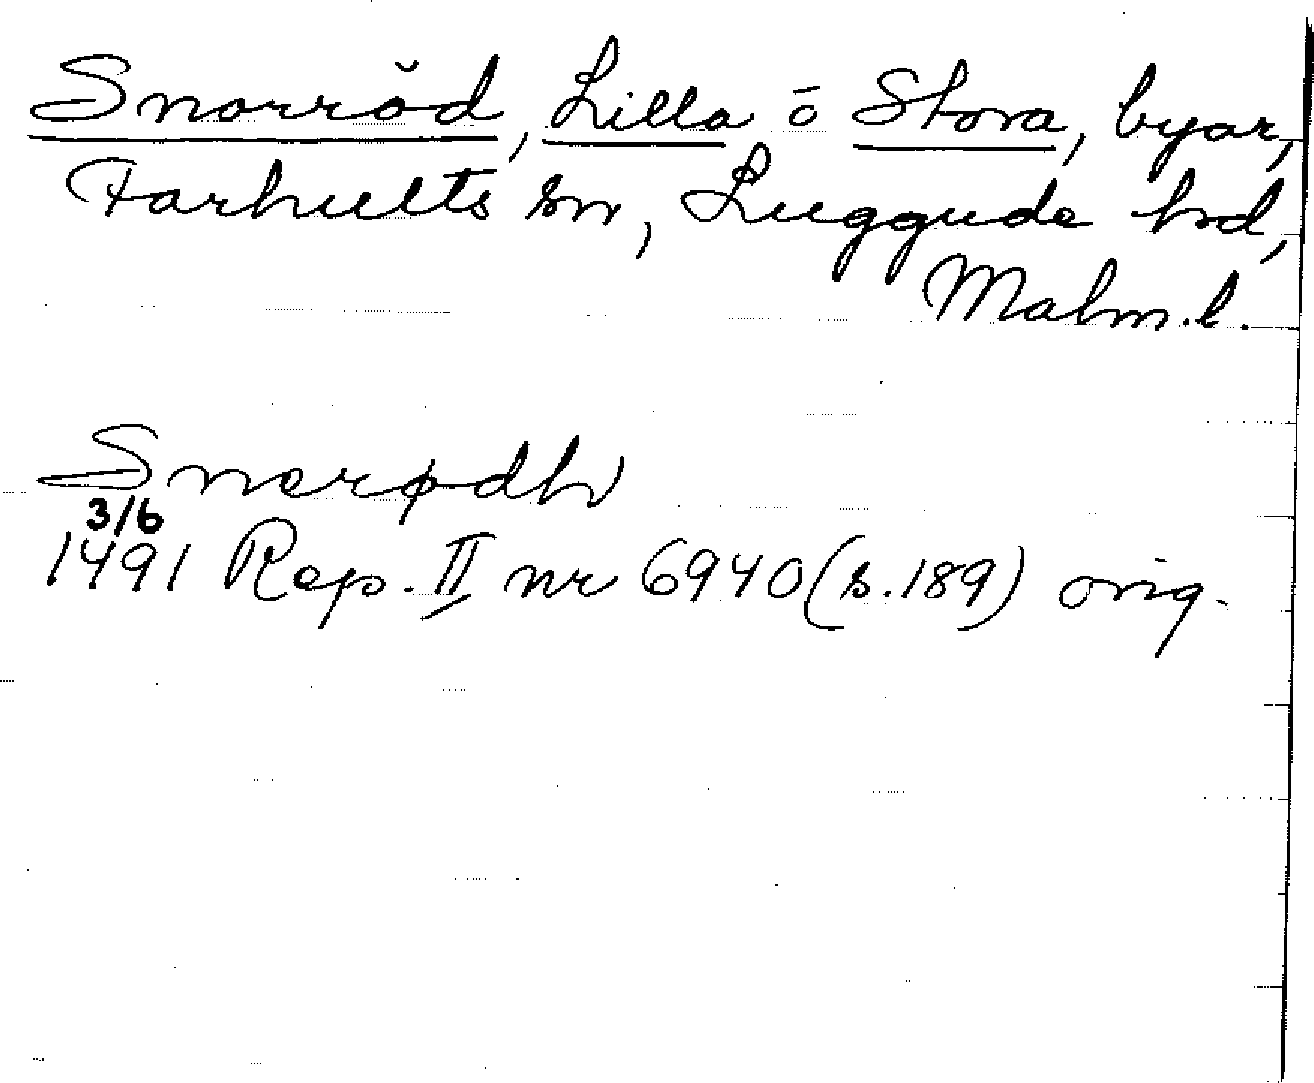 Snorröd, Lilla o Stora, byar,
Farhults sn, Luggude hd,
Malm.l.
Snerødh
3/6
1491 Rep. II nr 6940 (s.189) orig.